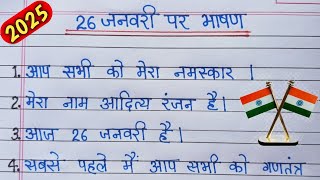 2025
26 जनवरी पर भाषण
1. आप सभी को मेरा नमस्कार ।
2. मेरा नाम आदित्य रंजन है ।
3. आज 26 जनवरी है ।
4. सबसे पहले मैं आप सभी को गणतंत्र